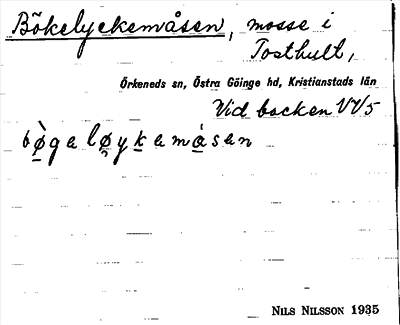 Bökelyckemåsen, mosse i
Tosthult,
Örkeneds sn, Östra Göinge hd, Kristianstads län
Vid backen VV/5
bø̀gəløykəmåsən
NILS NILSSON 1935